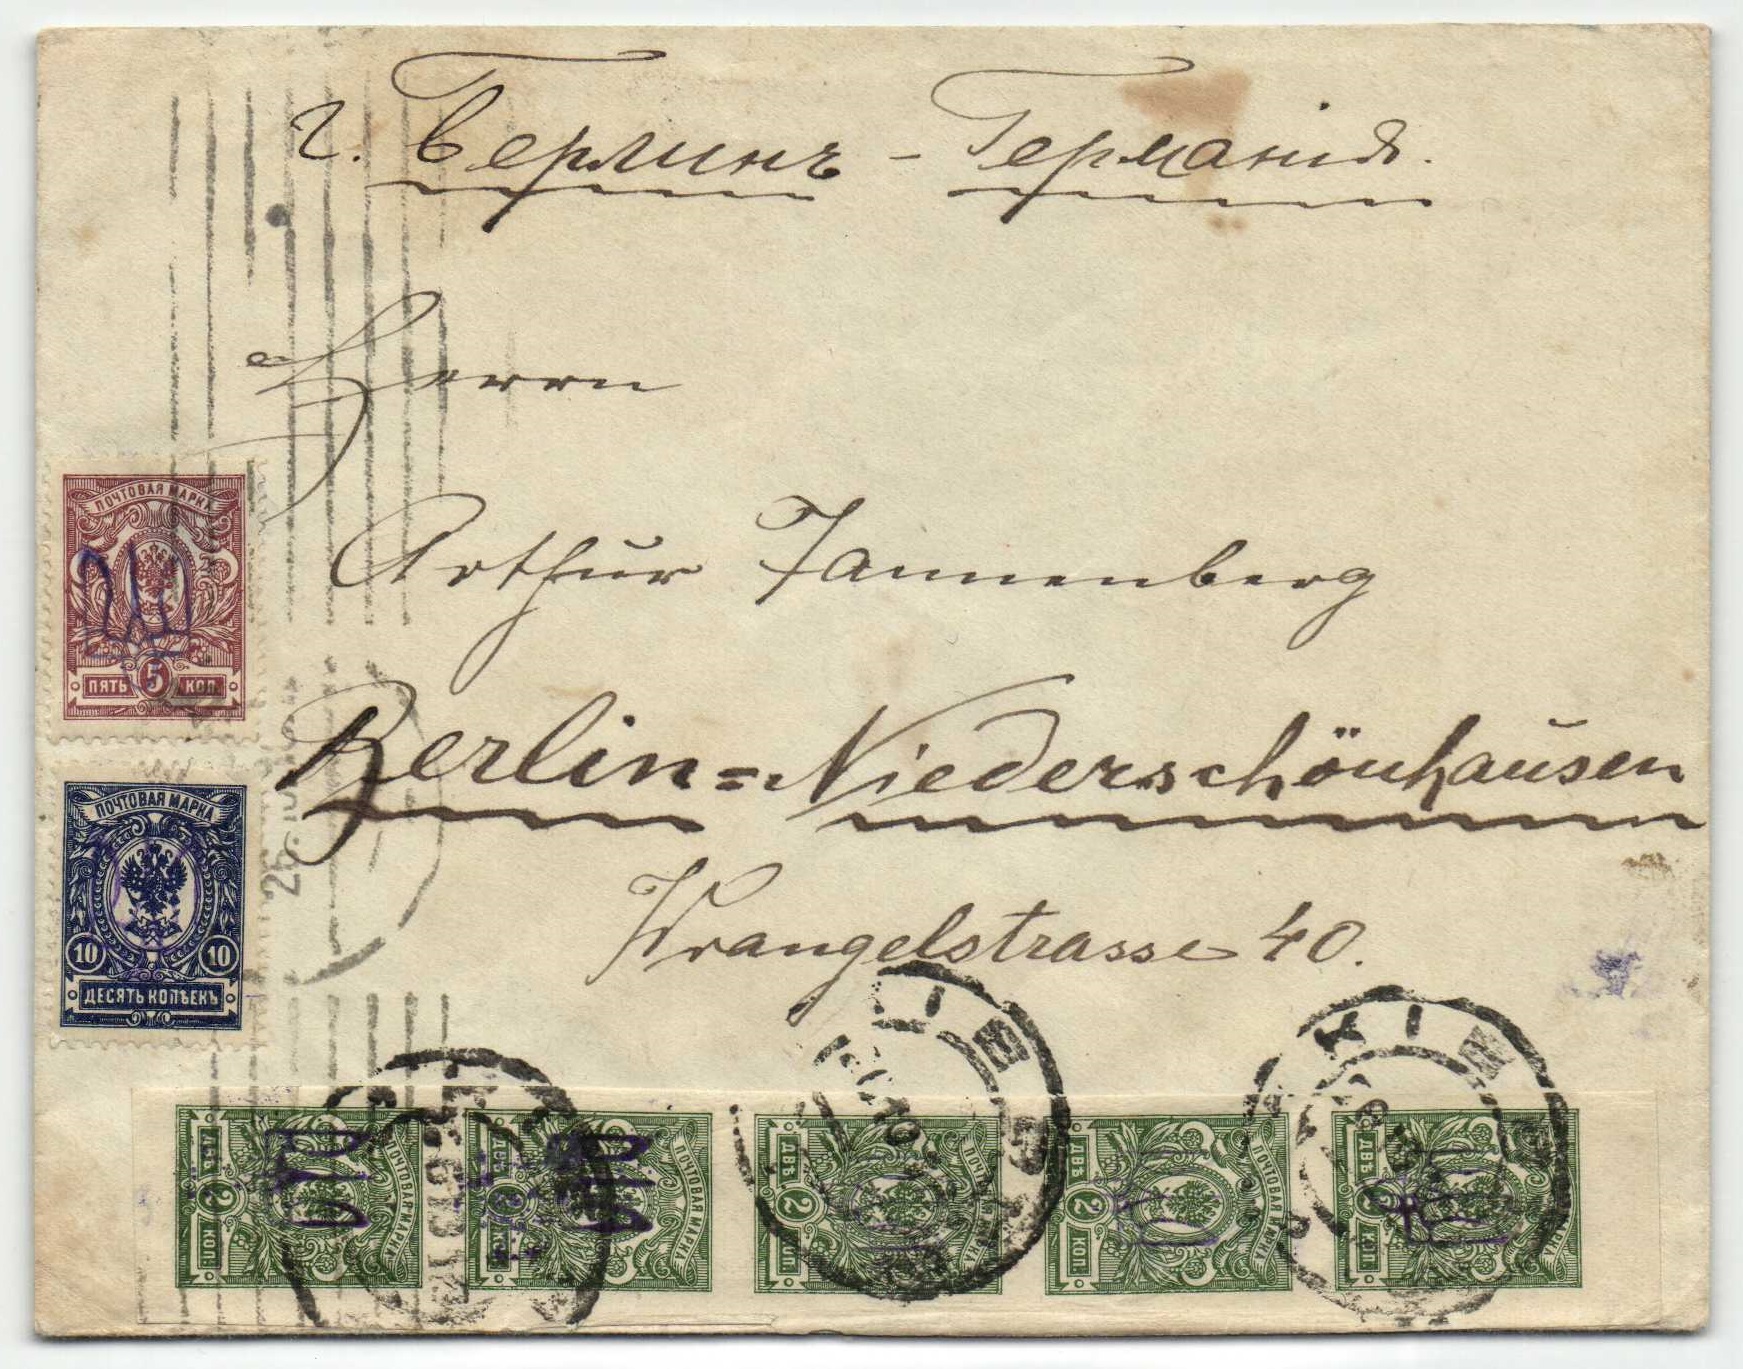 г. Берлинъ - Германія.
Herrn
Arthur Tannenberg
Berlin=Niederschönhausen
Wrangelstrasse 40.
ПОЧТОВАЯ МАРКА
ПЯТЬ 5 КОП.
ПОЧТОВАЯ МАРКА
10 10
ДЕСЯТЬ КОПѢЕКЪ
26.
КІЕВЪ
КІЕВЪ
ПОЧТОВАЯ МАРКА
ДВѢ 2 КОП.
ПОЧТОВАЯ МАРКА
ДВѢ 2 КОП.
ПОЧТОВАЯ МАРКА
ДВѢ 2 КОП.
ПОЧТОВАЯ МАРКА
ДВѢ 2 КОП.
ПОЧТОВАЯ МАРКА
ДВѢ 2 КОП.